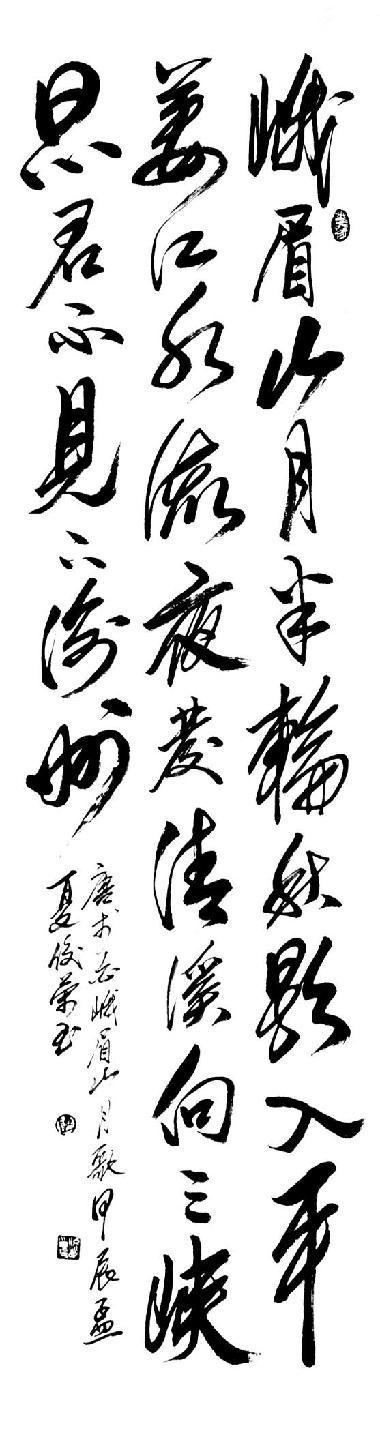 峨眉山月半輪秋影入平
羌江水流夜發清溪向三峽
思君不見下渝州
唐李白峨眉山月歌甲辰孟
夏俊荣书